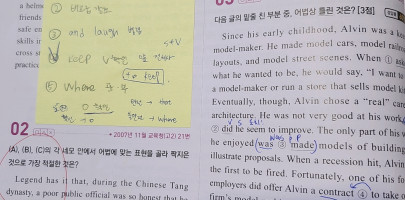 a being
friends
safe en
skills i
cross st
practic
② 바로는
③ and laugh 병렬
s+v
keep
to 부정사
⑤ Where
where
02
2007년 11월 교육청(고2) 21번
(A), (B), (C)의 각 네모 안에서 어법에 맞는 표현을 골라 짝지은
것으로 가장 적절한 것은?
Legend has it that, during the Chinese Tang
dynasty, a poor public official was so honest that he
다음 글의 밑줄 친 부분 중, 어법상 틀린 것은? [3점]
Since his early childhood, Alvin was a k
model-maker. He made model cars, model railro
layouts, and model street scenes. When ① ask
what he wanted to be, he would say, “I want to
a model-maker or run a store that sells model ki
Eventually, though, Alvin chose a “real” care
architecture. He was not very good at his work
② did he seem to improve. The only part of his w
he enjoyed was ③ made models of building
illustrate proposals. When a recession hit, Alvin
the first to be fired. Fortunately, one of his fo
employers did offer Alvin a contract ④ to take o
firm's model